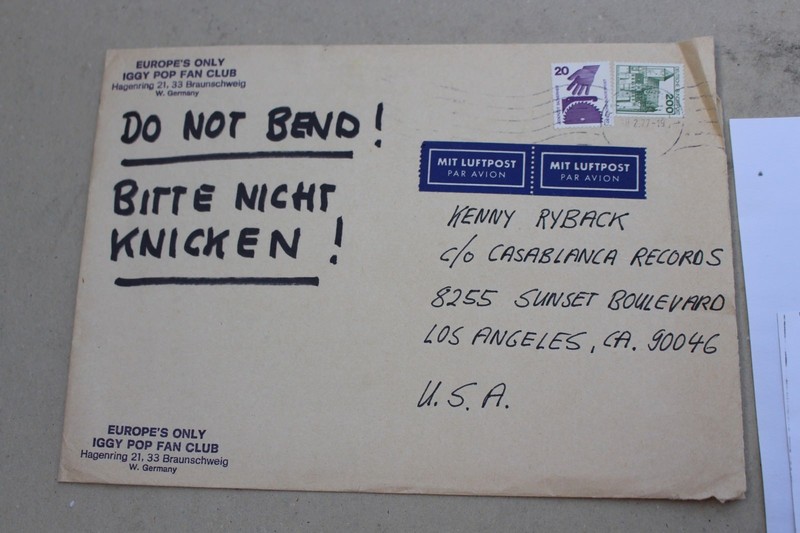 EUROPE'S ONLY
IGGY POP FAN CLUB
Hagenring 21, 33 Braunschweig
W. Germany
DO NOT BEND!
BITTE NICHT
KNICKEN!
20
200
MIT LUFTPOST
PAR AVION
MIT LUFTPOST
PAR AVION
KENNY RYBACK
c/o CASABLANCA RECORDS
8255 SUNSET BOULEVARD
LOS ANGELES, CA. 90046
U.S.A.
EUROPE'S ONLY
IGGY POP FAN CLUB
Hagenring 21, 33 Braunschweig
W. Germany